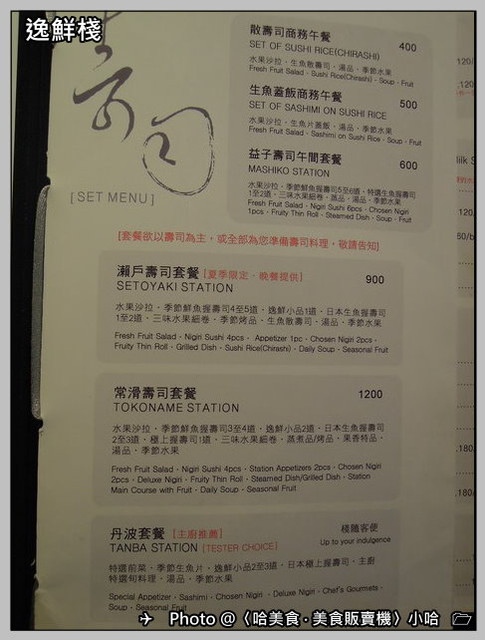 逸鮮棧
壽司
[ SET MENU ]
散壽司商務午餐 400
SET OF SUSHI RICE(CHIRASHI)
水果沙拉、生魚散壽司、湯品、季節水果
Fresh Fruit Salad、Sushi Rice(Chirashi)、Soup、Fruit
生魚蓋飯商務午餐 500
SET OF SASHIMI ON SUSHI RICE
水果沙拉、生魚片蓋飯、湯品、季節水果
Fresh Fruit Salad、Sashimi on Sushi Rice、Soup、Fruit
益子壽司午間套餐 600
MASHIKO STATION
水果沙拉、季節鮮魚握壽司5至6道、特選生魚握壽司
1至2道、三味水果細卷、蒸品、湯品、季節水果
Fresh Fruit Salad、Nigiri Sushi 6pcs、Chosen Nigiri
1pcs、Fruity Thin Roll、Steamed Dish、Soup、Fruit
[套餐欲以壽司為主，或全部為您準備壽司料理，敬請告知]
瀨戶壽司套餐 [夏季限定、晚餐提供] 900
SETOYAKI STATION
水果沙拉、季節鮮魚握壽司4至5道、逸鮮小品1道、日本生魚握壽司
1至2道、三味水果細卷、季節烤品、生魚散壽司、湯品、季節水果
Fresh Fruit Salad、Nigiri Sushi 4pcs、Appetizer 1pc、Chosen Nigiri 2pcs、
Fruity Thin Roll、Grilled Dish、Sushi Rice(Chirashi)、Daily Soup、Seasonal Fruit
常滑壽司套餐 1200
TOKONAME STATION
水果沙拉、季節鮮魚握壽司3至4道、逸鮮小品2道、日本生魚握壽司
2至3道、極上握壽司1道、三味水果細卷、蒸煮品/烤品、果香特品、
湯品、季節水果
Fresh Fruit Salad、Nigiri Sushi 4pcs、Station Appetizers 2pcs、Chosen Nigiri
2pcs、Deluxe Nigiri、Fruity Thin Roll、Steamed Dish/Grilled Dish、Station
Main Course with Fruit、Daily Soup、Seasonal Fruit
丹波套餐 [主廚推薦] 棧隨客便
TANBA STATION [TESTER CHOICE] Up to your indulgence
特選前菜、季節生魚片、逸鮮小品2至3道、日本極上握壽司、主廚
特選旬料理、湯品、季節水果
Special Appetizer、Sashimi、Chosen Nigiri、Deluxe Nigiri、Chef's Gourmets、
Soup、Seasonal Fruit
Photo @〈哈美食·美食販賣機〉小哈